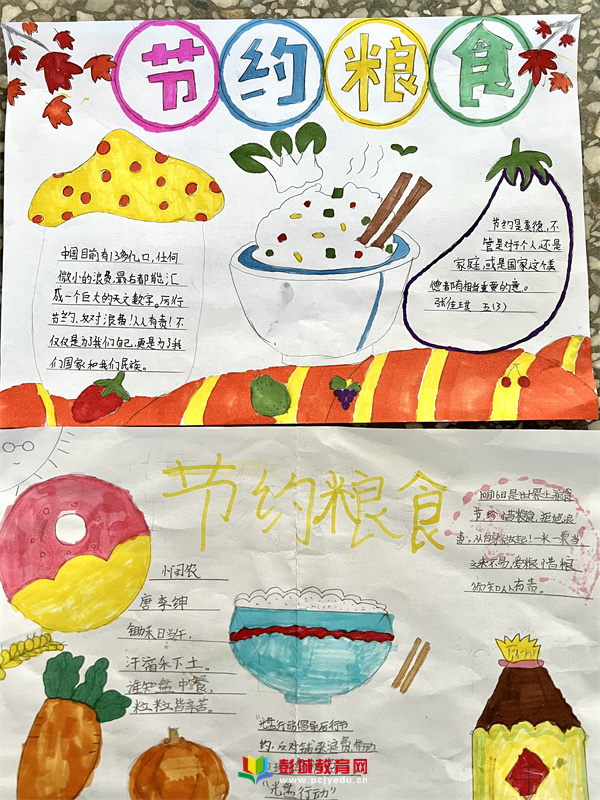 节约粮食
中国目前有13多亿口,任何
微小的浪费,最后都能汇
成一个巨大的天文数字。厉行
节约、反对浪费!人人有责!不
仅仅是为了我们自己,更是为了我
们国家和我们民族。
节约是美德,不
管是对于个人还是
家庭,或是国家这个美
德都有相当重要的意。
张佳琪 五(3)
节约粮食
10月16日是世界上粮食
节约
粮食,拒绝浪
费,从自身做起!一米一粟当
之来不易,爱粮惜粮
人有责。
小闵农
唐李绅
锄禾日当午,
汗滴禾下土。
谁知盘中餐,
粒粒皆辛苦。
"光盘行动倡导厉行节
约,反对铺张浪费,带动
"光盘行动"
彭城教育网
www.pcjyedu.cn